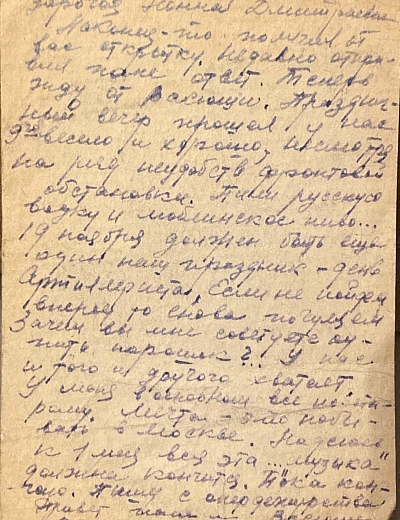 дорогая Нонна Дмитриевна
Наконец-то получил от
вас открытку. недавно отпра-
вил маме ответ. Теперь
жду от Расюши. Празднич-
ный вечер прошел у нас
весело и хорошо, несмотря
на ряд неудобств фронтовой
обстановки. Пили русскую
водку и мюлинское пиво...
19 ноября должен быть ещё
один наш праздник - день
Артиллериста. Если не пойдем
вперед, то снова погуляем
Зачем вы мне советуете ку-
рить порошок?.. У нас
и того и другого хватает
У меня в основном все по-ста-
рому. Мечта - это побы-
вать в Москве. Надеюсь
к 1 мая вся эта... "музыка"
должна кончится. Пока кон-
чаю. Пишу с
Привет